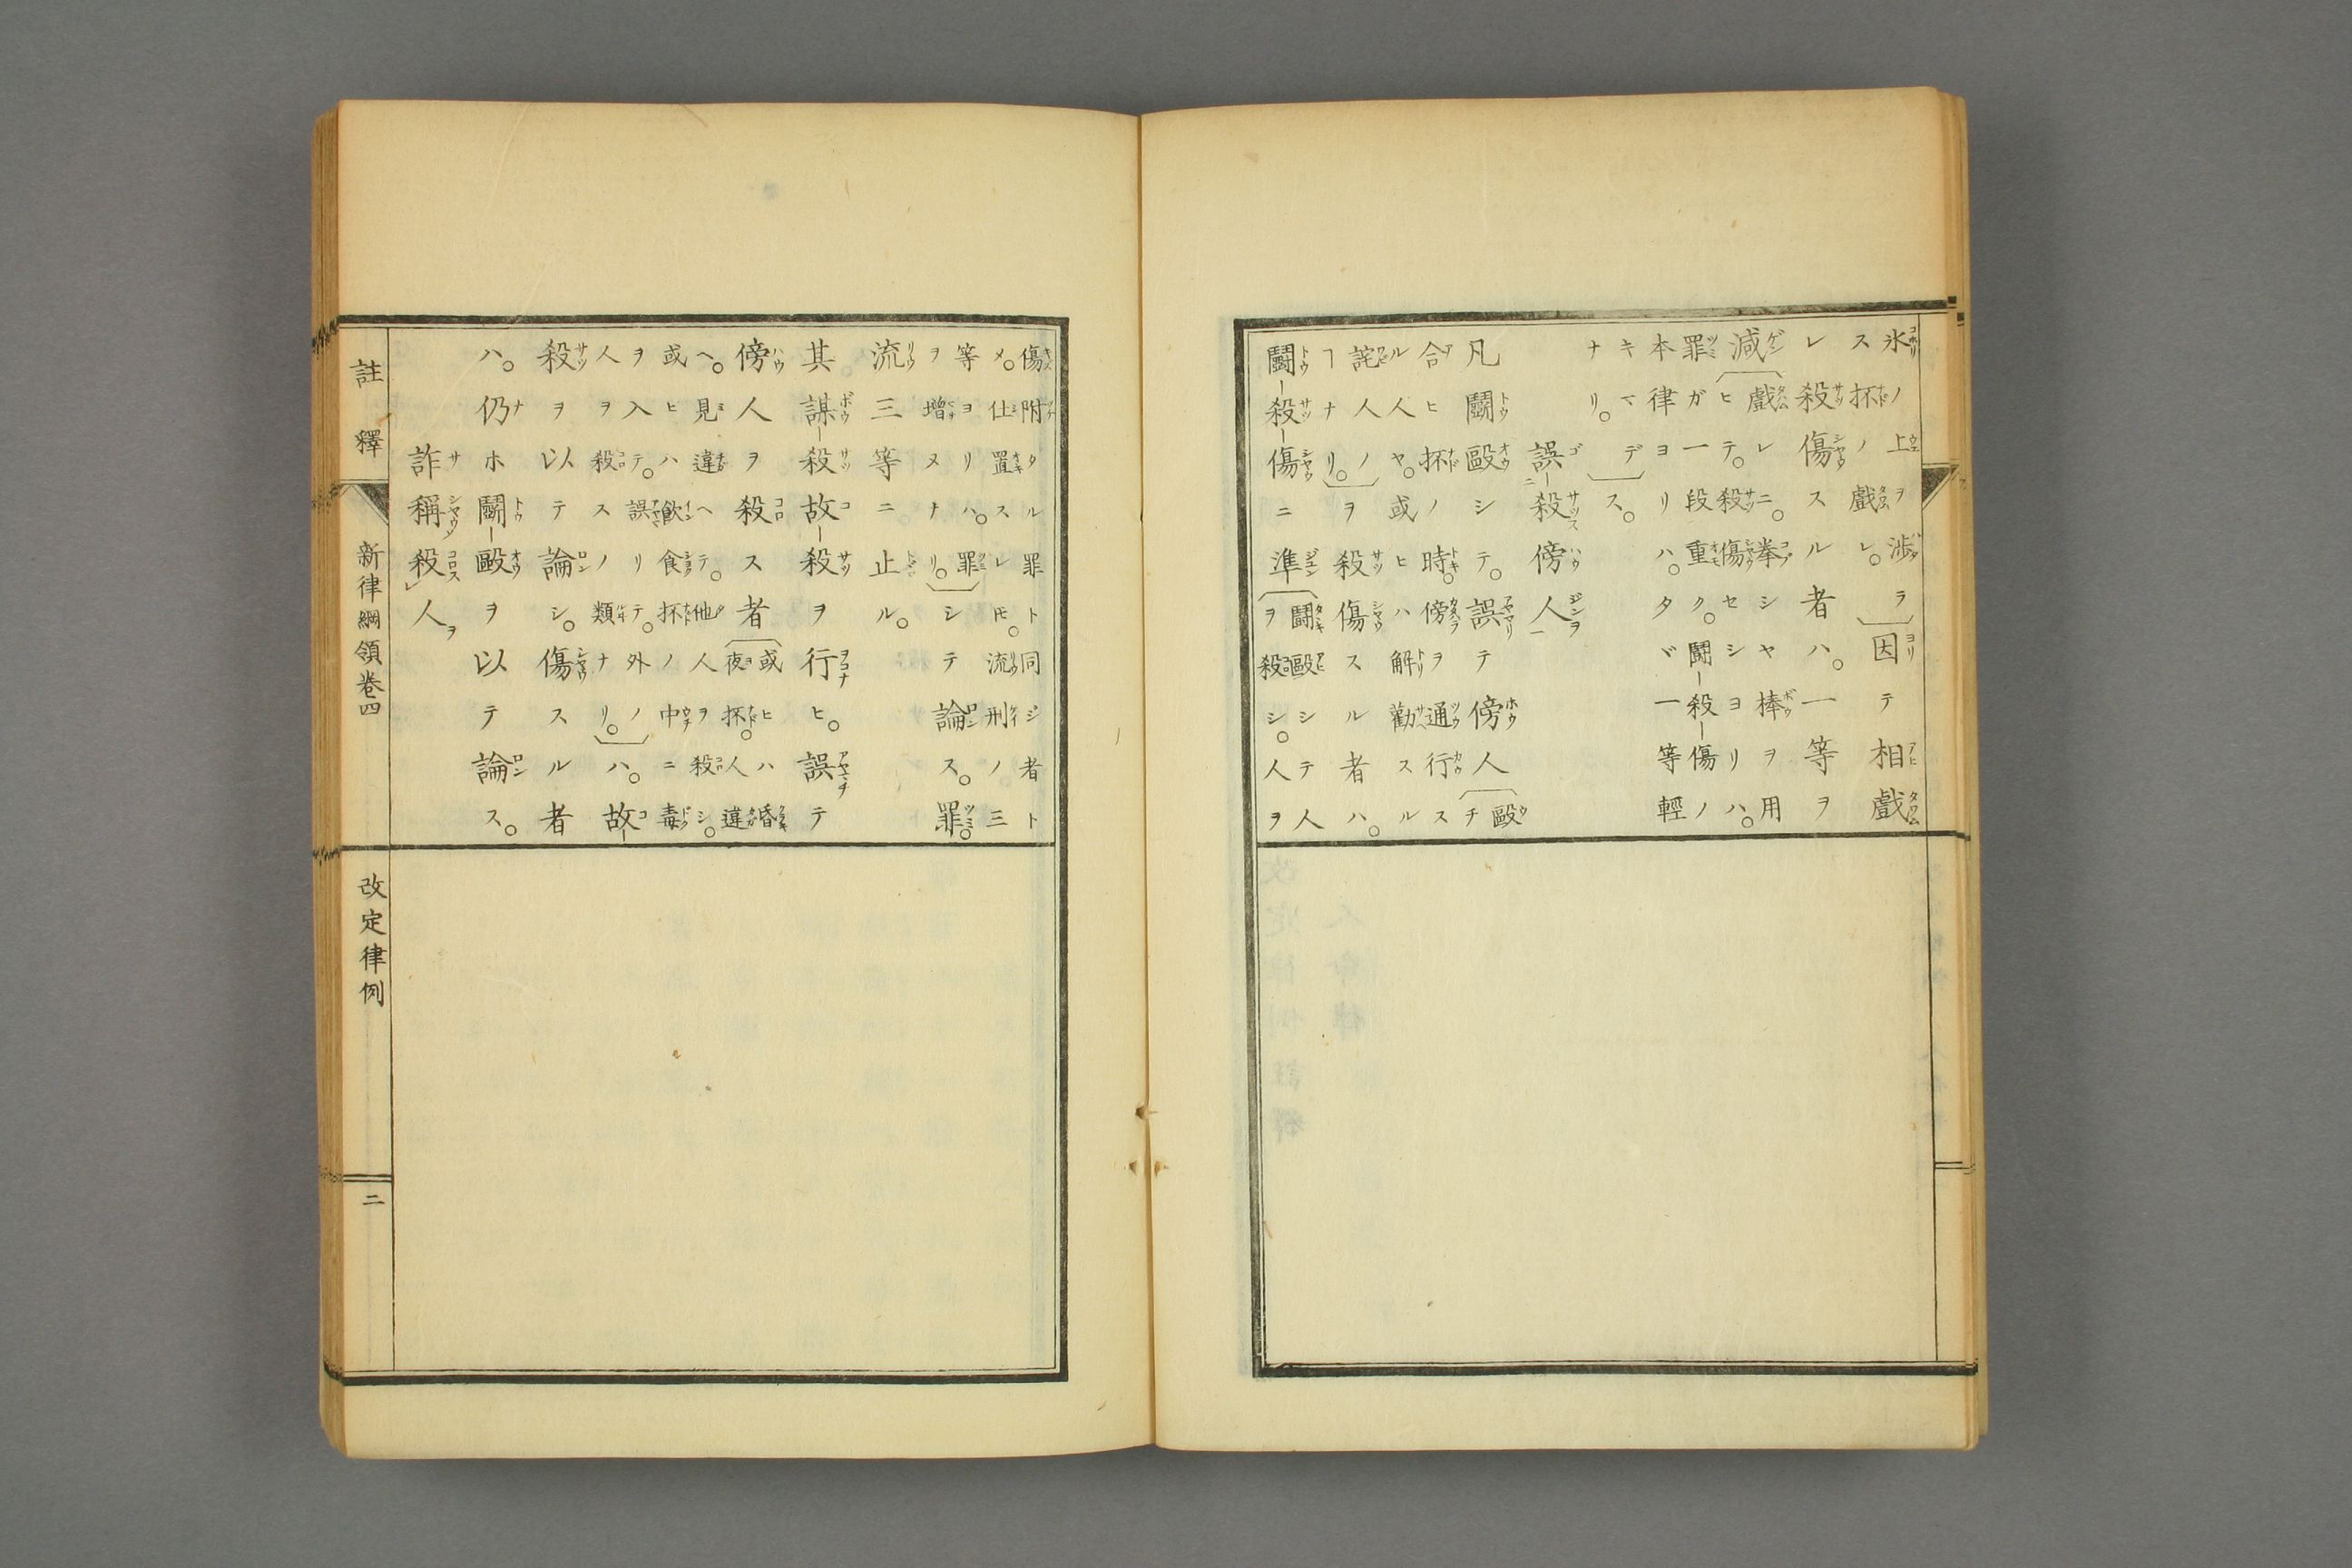 氷ノ上ヲ渉ラ
ス抔ノ戲レ。
因テ相戲
レ殺傷スル者ハ。一等ヲ
減
戲レニ。拳シヤ棒ヲ用
ヒテ。殺傷セシヨリハ。
罪ガ一段重ク。鬪殺傷ノ
本律ヨリハ。タヾ一等輕
キマデ
ナリ。
ス。
誤殺傍人
凡鬪毆シテ。誤テ傍人
毆
チ
合ヒ抔ノ時。傍ヲ通行ス
ル人ヤ。或ヒハ解勸スル
詫人ノ
ヿナリ。
ヲ殺傷スル者ハ。
鬪殺傷ニ準
鬪毆シテ人
ヲ殺シ。人ヲ
傷附タル罪ト同ジ者ト
メ。仕置スレ𪜈。流刑ノ三
等ヨリハ。罪
ヲ増ヌナリ。
シテ論ス。罪。
流三等ニ止ル。
其謀殺故殺ヲ行ヒ。誤テ
傍人ヲ殺ス者
或ヒハ婚
夜抔。人違
ヘ。見違ヘテ。他人ヲ殺シ。
或ヒハ飲食抔ノ中ニ毒
ヲ入テ。誤リテ。外ノ
人ヲ殺スノ類ナリ。
ハ。故
殺ヲ以テ論シ。傷スル者
ハ。仍ホ鬪毆ヲ以テ論ス。
詐稱殺人
註釋 新律綱領卷四 改定律例 二